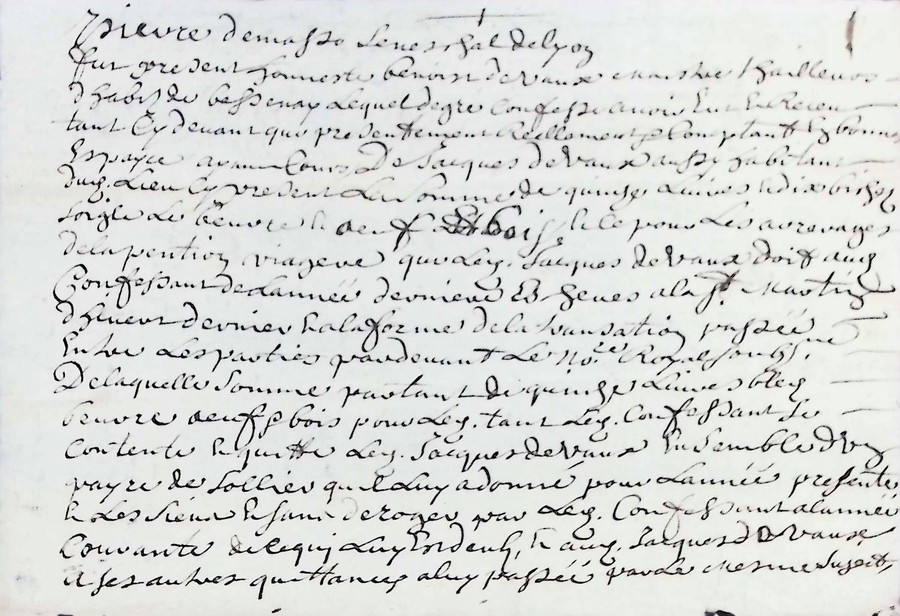 pierre demasso seneschal de lyon
fut present honneste benoist devaux maistre thailleur
dhabit de bessenay lequel de gre confesse avoir eut et receu
tant cy devant que presentement reellement et comptant en bonne
espayce ayant cours De Jacques devaux aussy habitant
dud. lieu cy present la somme de quinze livres et dix bichez
soigle le beurre et oeuf bois, et ce pour les arrerages
de la pention viagere que led. Jacques devaux doit aud
Confessant de lannée derniere escheue a la st. martin
dhivert dernier et a la forme de la transation passée
entre les parties pardevant le no.re Royal soubs.né
De laquelle somme partant de quinze livres bled
beurre oeuf et bois pour led. tant led. Confessant se
contente et quitte led. Jacques devaux ensemble dun
payre de sollier quil luy a donné pour lannée presente
et les siens et sans deroger par led. Confessant a lannée
courante de ce quj luy est deub, et aud. Jacques devaux
a ses autres quittances a luy passée par le mesme sujet,